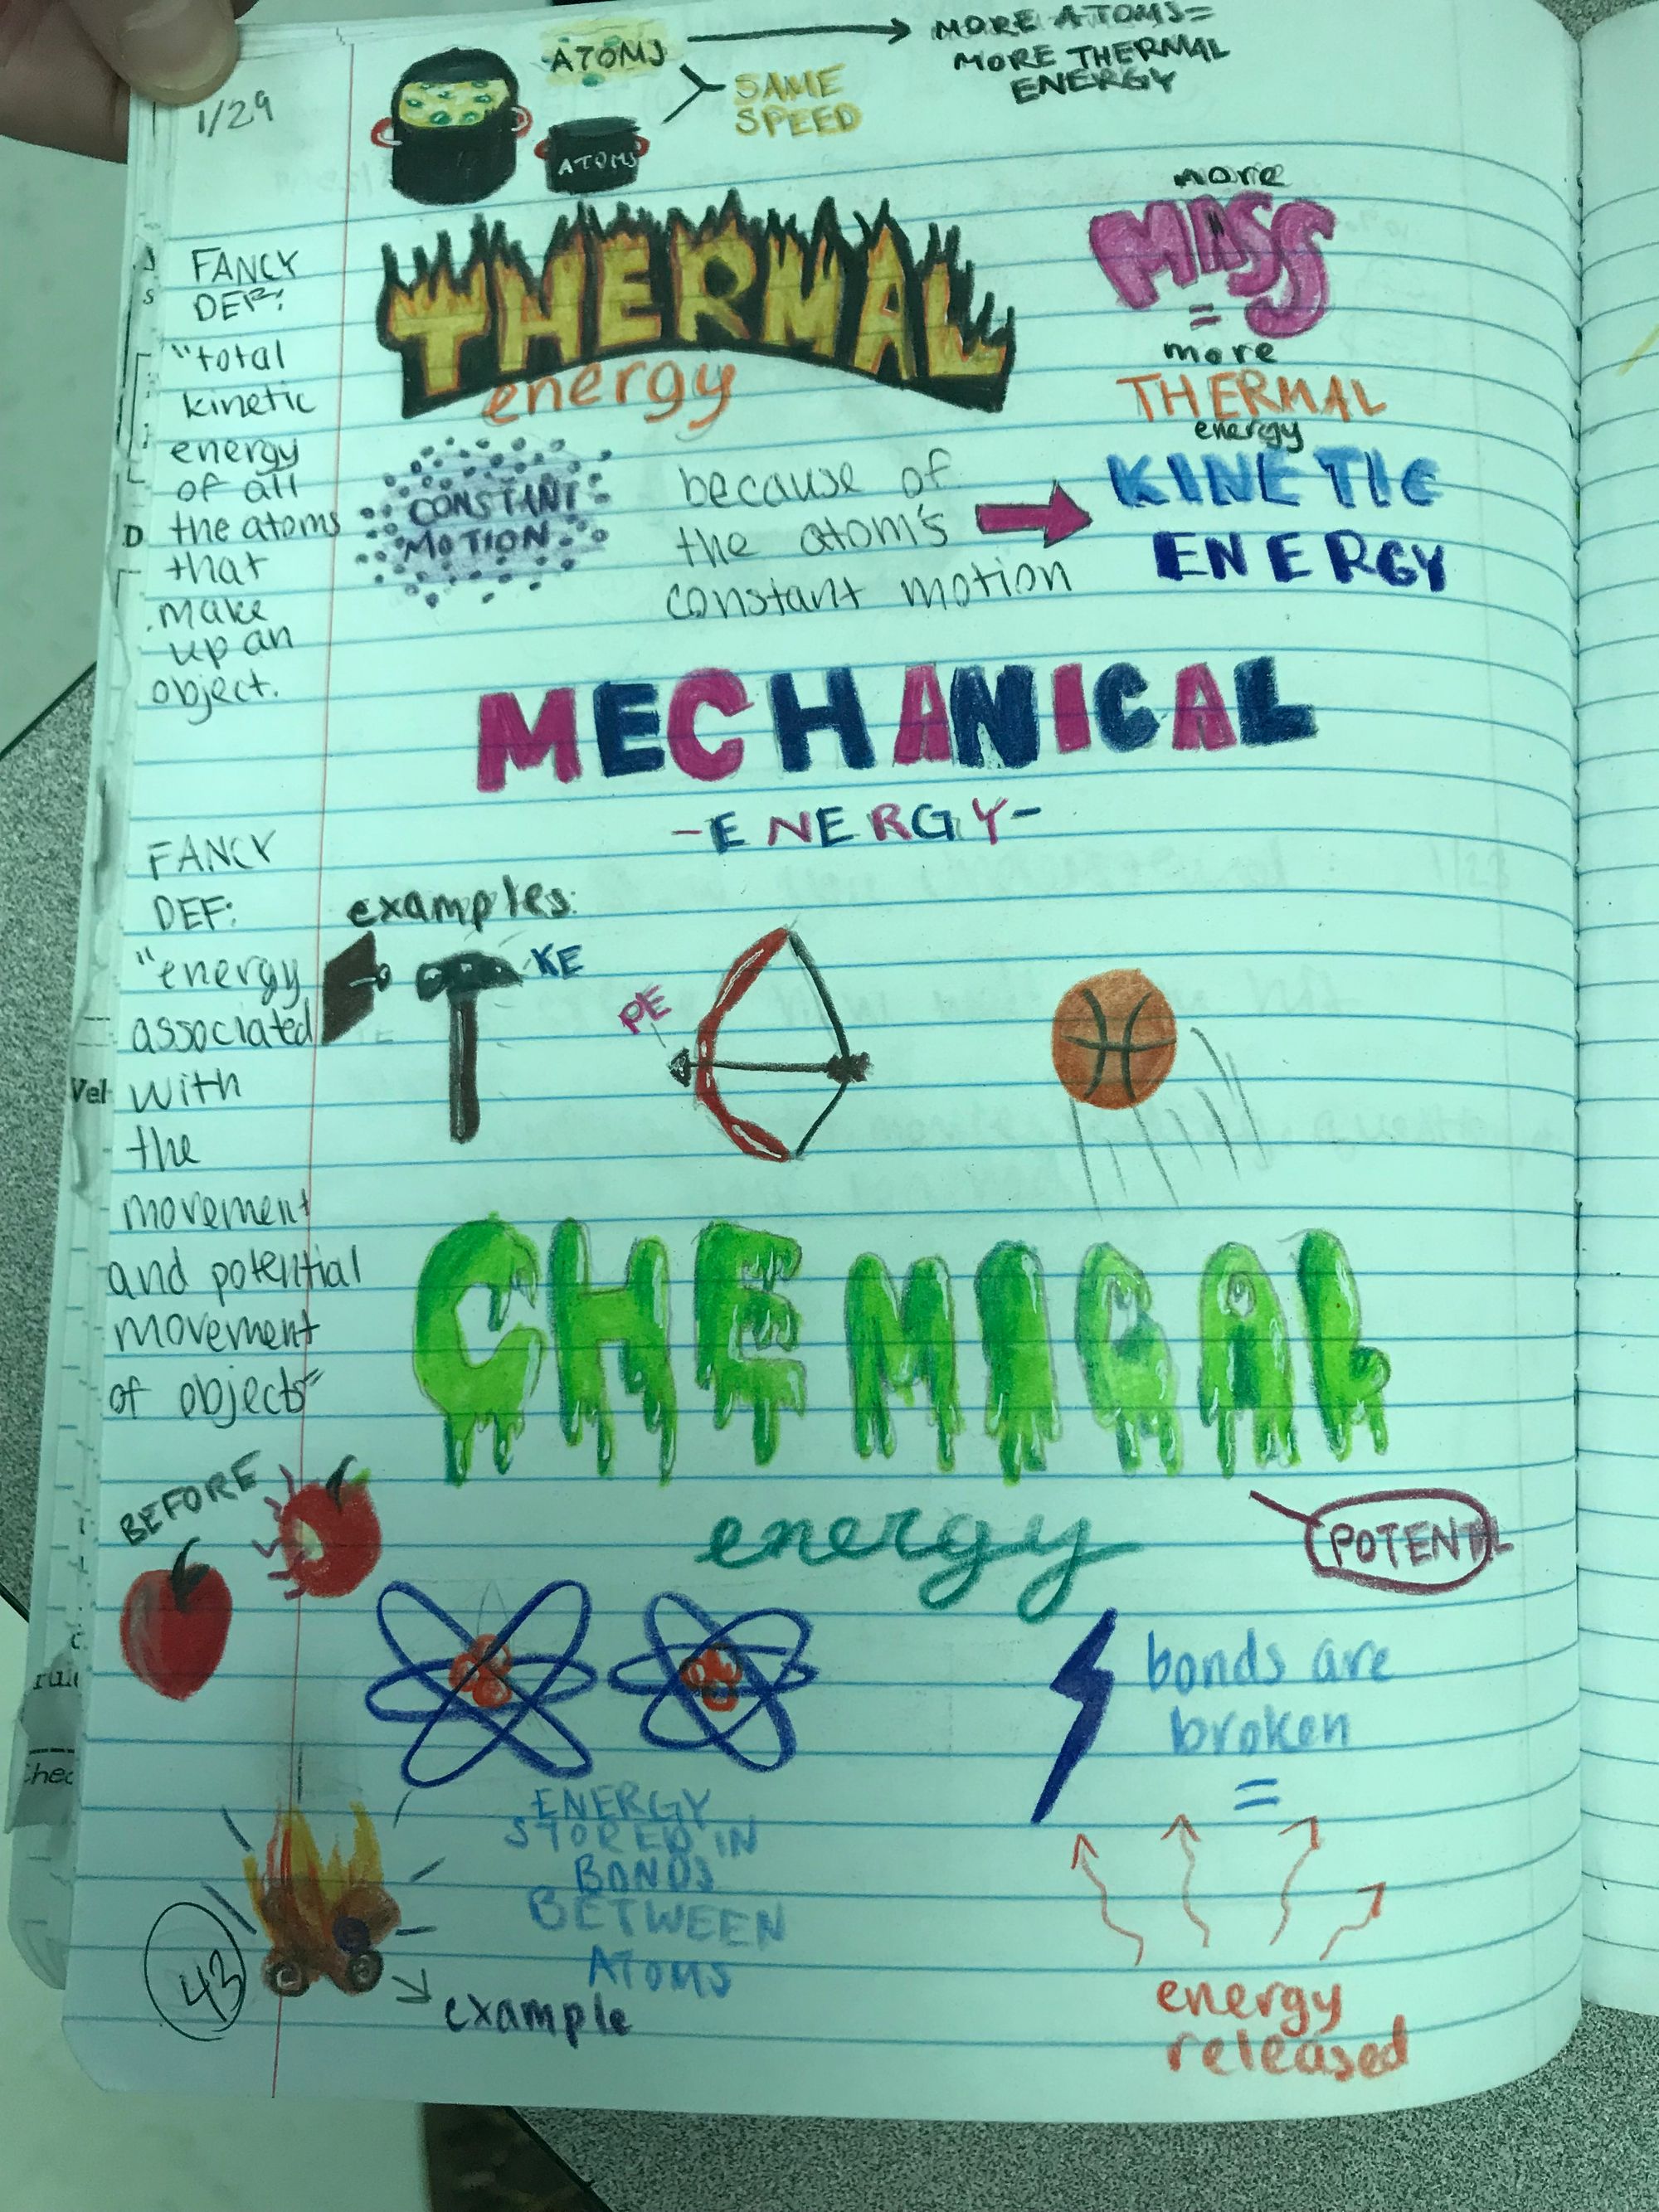 1/29
ATOMS
MORE ATOMS=
MORE THERMAL
ENERGY
SAME
SPEED
ATOMS
THERMAL
energy
more
MASS
=
more
THERMAL
energy
FANCY
DEF:
"total
kinetic
energy
of all
the atoms
that
make
up an
object.
CONSTANT
MOTION
because of
the atom's
constant motion
KINETIC
ENERGY
MECHANICAL
-ENERGY-
FANCY
DEF:
"energy
associated
with
the
movement
and potential
movement
of objects"
examples:
KE
PE
CHEMICAL
energy
POTENTL
BEFORE
bonds are
broken
=
energy
released
ENERGY
STORED IN
BONDS
BETWEEN
ATOMS
example
43
D
Vel